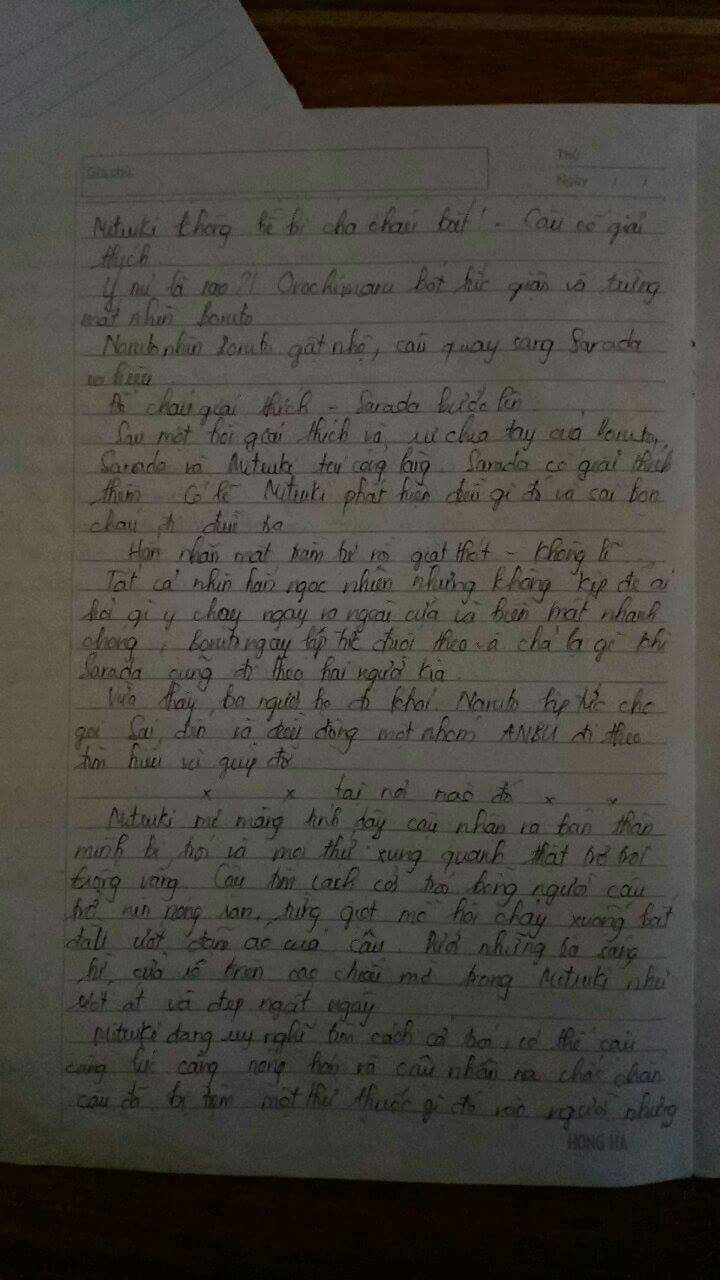 Ghi chú
Thứ
Ngày / /
Mitsuki không hề bị cha cháu bắt! - Cậu cố giải
thích.
Ý mi là sao?! Orochimaru bớt tức giận và
mắt nhìn Boruto
Naruto nhìn Boruto gật nhẹ, cậu quay sang Sarada
ra hiệu
Để cháu giải thích - Sarada bước lên.
Sau một hồi giải thích và sự chia tay của Boruto,
Sarada và Mitsuki tại cổng làng. Sarada cố giải thích
thêm. Có lẽ Mitsuki phát hiện điều gì đó và sai bọn
cháu đi
Hắn nhăn mặt trầm tư rồi giật thót - Không lẽ
Tất cả nhìn hắn ngạc nhiên nhưng không kịp để ai
hỏi gì y chạy ngay ra ngoài cửa và biến mất nhanh
chóng, Boruto ngay lập tức đuổi theo và chả lạ gì khi
Sarada cũng đi theo hai người kia.
Vừa thấy ba người họ đi khỏi. Naruto lập tức cho
gọi Sai đến và điều động một nhóm ANBU đi theo
tìm hiểu và giúp đỡ
x x tại nơi nào đó x x
Mitsuki mơ màng tỉnh dậy cậu nhận ra bản thân
mình bị trói và mọi thứ xung quanh thật
trống vắng. Cậu tìm cách cởi trói bỗng người cậu
nóng ran, từng giọt mồ hôi chảy xuống bắt
đầu ướt đẫm áo của cậu. Dưới những tia sáng
từ cửa sổ trên cao trong Mitsuki như
ướt át và đẹp ngất ngây
Mitsuki đang suy nghĩ tìm cách cởi trói, cơ thể cậu
càng lúc càng nóng hơn và cậu nhận ra chắc chắn
cậu đã bị tiêm một thứ thuốc gì đó vào người nhưng
HONG HA